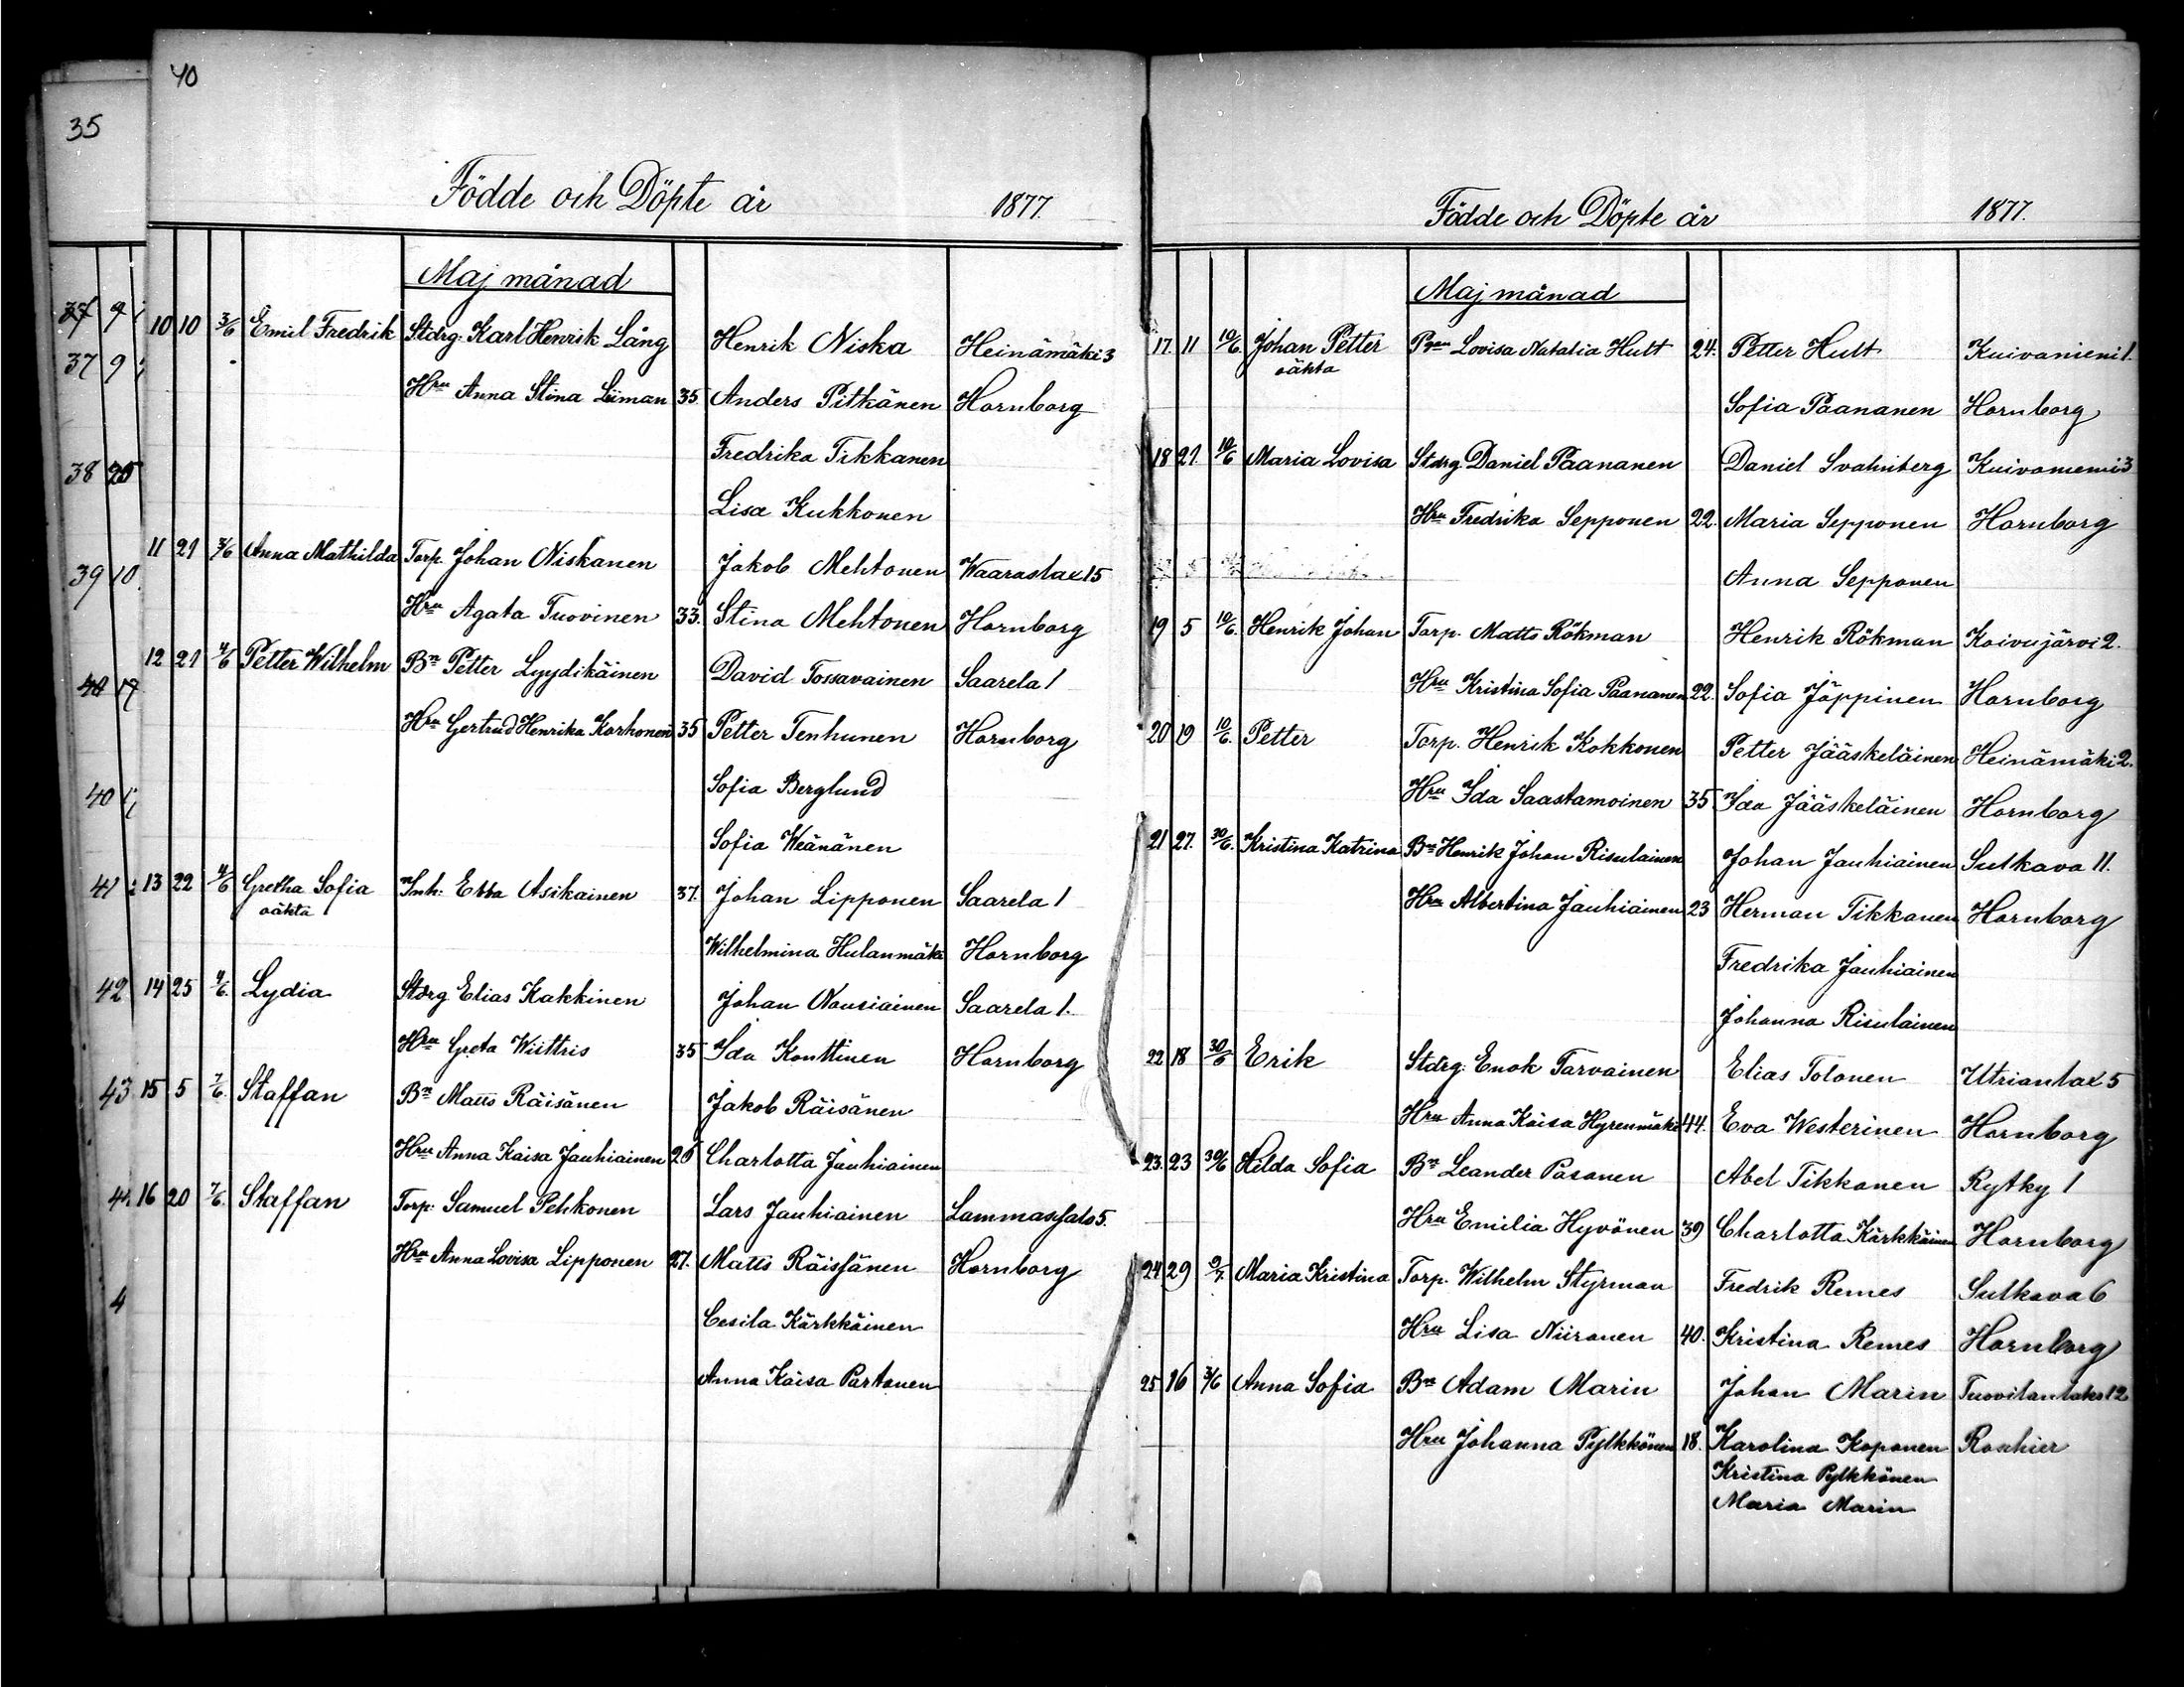 40
35
Födde och Döpte år 1877.
Maj månad
37 9
10 10 3/6 Emil Fredrik Stdrg. Karl Henrik Lång Henrik Niska Heinämäki 3
37 9
Hru Anna Stina Liiman 35 Anders Pitkänen Hornborg
Fredrika Tikkanen
38 25
Lisa Kukkonen
11 21 3/6 Anna Mathilda Torp. Johan Niskanen Jakob Mehtonen Waarastax 15
39 10
Hru Agata Tuovinen 33. Stina Mehtonen Hornborg
12 21 4/6 Petter Wilhelm Bn Petter Lyydikäinen David Tossavainen Saarela 1
40 17
Hru Gertrud Henrika Korhonen 35 Petter Tenhunen Hornborg
Sofia Berglund
40
Sofia Wäänänen
41 13 22 4/6 Gretha Sofia Inh: Ebba Asikainen 37. Johan Lipponen Saarela 1
oäkta
Wilhelmina Hulanmäki Hornborg
42 14 25 4/6. Lydia Stdrg Elias Kakkinen Johan Nousiainen Saarela 1.
Hru Greta Wiittris 35 Ida Konttinen Hornborg
43 15 5 7/6. Staffan Bn Matts Räisänen Jakob Räisänen
Hru Anna Kaisa Jauhiainen 26 Charlotta Jauhiainen
44. 16 20 7/6. Staffan Torp: Samuel Pehkonen Lars Jauhiainen Lammassalo 5.
Hru Anna Lovisa Lipponen 27. Matts Räissänen Hornborg
4
Cesila Kärkkäinen
Anna Kaisa Partanen
Födde och Döpte år 1877.
Maj månad
17. 11 10/6. Johan Petter Pigan Lovisa Natalia Hult 24. Petter Hult Kuivaniemi 1.
oäkta
Sofia Paananen Hornborg
18 21 10/6 Maria Lovisa Stdrg. Daniel Paananen Daniel Svahnberg Kuivaniemi 3
Hru Fredrika Sepponen 22. Maria Sepponen Hornborg
Anna Sepponen
19 5 10/6. Henrik Johan Torp. Matts Rökman Henrik Rökman Koivujärvi 2.
Hru Kristina Sofia Paananen 22. Sofia Jäppinen Hornborg
20 19 10/6. Petter Torp. Henrik Kokkonen Petter Jääskeläinen Heinämäki 2.
Hru Ida Saastamoinen 35 Ida Jääskeläinen Hornborg
21 27. 30/6. Kristina Katrina Bn Henrik Johan Risulainen Johan Jauhiainen Sulkava 11.
Hru Albertina Jauhiainen 23 Herman Tikkanen Hornborg
Fredrika Jauhiainen
Johanna Risulainen
22 18 30/6 Erik Stdrg: Enok Tarvainen Elias Tolonen Utriantax 5
Hru Anna Kaisa Hyrenmäki 44. Eva Westerinen Hornborg
23. 23 30/6 Hilda Sofia Bn Leander Pasanen Abel Tikkanen Rytky 1
Hru Emilia Hyvönen 39 Charlotta Kärkkäinen Hornborg
24 29 9/7. Maria Kristina Torp. Wilhelm Styrman Fredrik Remes Sulkava 6
Hru Lisa Niiranen 40. Kristina Remes Hornborg
25 16 3/6 Anna Sofia Bn Adam Marin Johan Marin Tuovilanlaks 12
Hru Johanna Pylkkönen 18. Karolina Koponen Roschier
Kristina Pylkkönen
Maria Marin